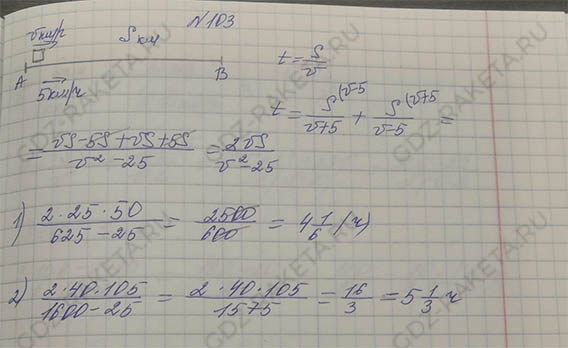 N 103
v км/ч S км
A B t = S/v
5 км/ч
t = S^(v-5/(v+5) + S^(v+5/(v-5) =
= (vS - 5S + vS + 5S)/(v² - 25) = 2vS/(v² - 25)
1) (2·25·50)/(625 - 25) = 2500/600 = 4 1/6 (ч)
2) (2·40·105)/(1600 - 25) = (2·40·105)/1575 = 16/3 = 5 1/3 ч
GDZ-RAKETA.RU